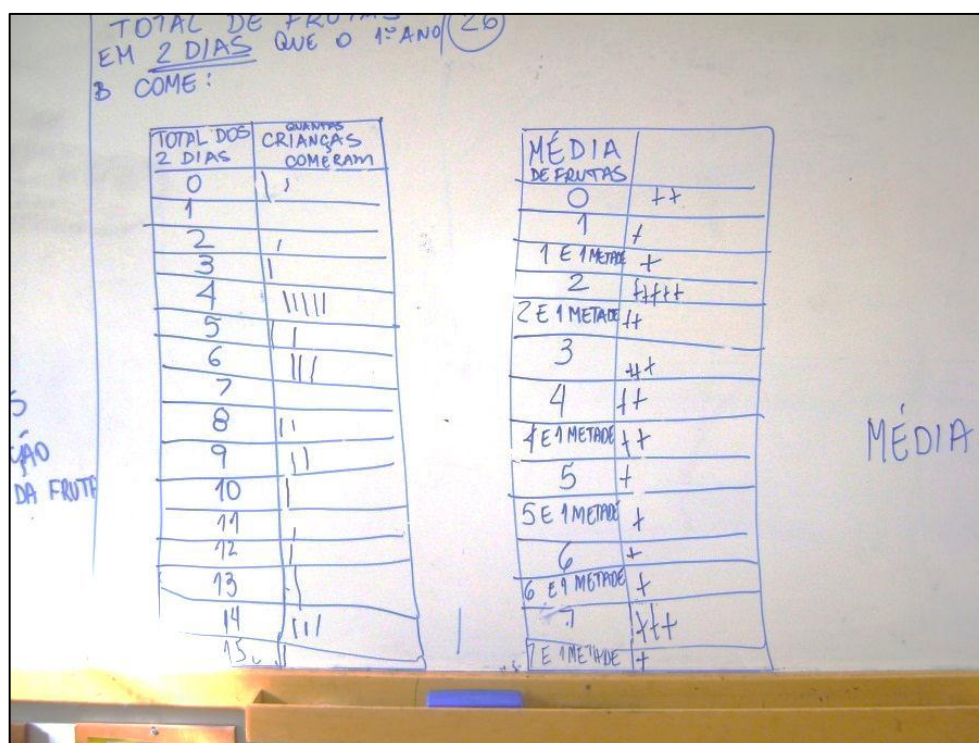 TOTAL DE FRUTAS
EM 2 DIAS QUE O 1º ANO 26
B COME:
TOTAL DOS 2 DIAS QUANTAS CRIANÇAS COMERAM
0
1
2
3
4
5
6
7
8
9
10
11
12
13
14
15
MÉDIA DE FRUTAS
0
1
1 E 1 METADE
2
2 E 1 METADE
3
4
4 E 1 METADE
5
5 E 1 METADE
6
6 E 1 METADE
7
7 E 1 METADE
DA FRUTA
MÉDIA